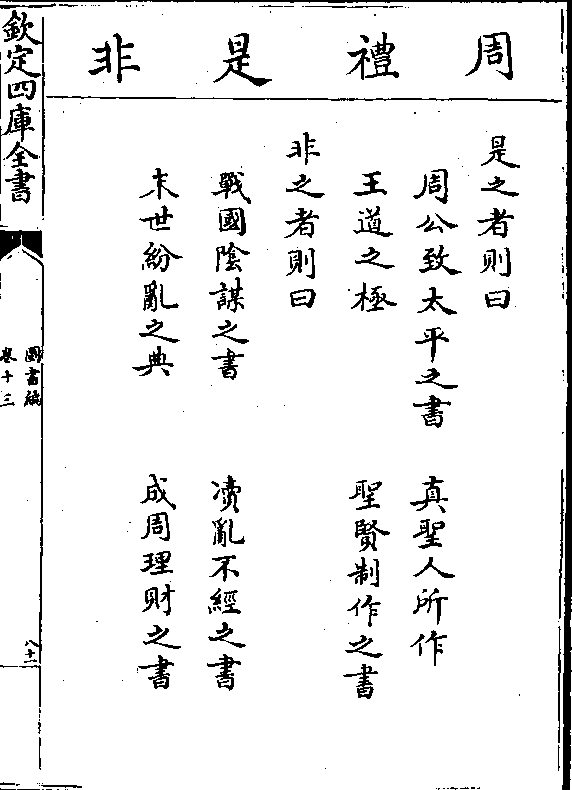 周禮是非
是之者則曰
周公致太平之書　真聖人所作
王道之極　聖賢制作之書
非之者則曰
戰國陰謀之書　凟亂不經之書
末世紛亂之典　成周理財之書
欽定四庫全書
圖書編
卷十三
八十二